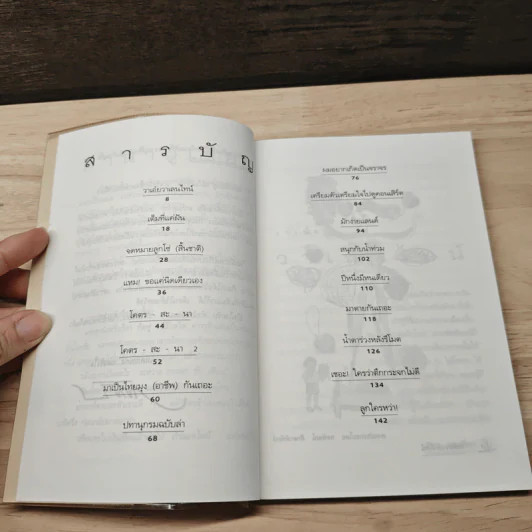 สารบัญ
วาย์ยวาเลนไทน์
8
เติมที่แค่ฝัน
18
จดหมายลูกโซ่ (สิ้นชาติ)
28
แหม! ขอแค่นิดเดียวเอง
36
โคตร - สะ - นา
44
โคตร - สะ - นา 2
52
มาเป็นไทยมุง (อาชีพ) กันเถอะ
60
ปทานุกรมฉบับล่า
68
ผมอยากเกิดเป็นพราหร
76
เตรียมตัวเตรียมใจไปดูคอนเสิร์ต
84
มักง่ายแลนด์
94
สนุกกับน้ำท่วม
102
ปีหนึ่งมีหนเดียว
110
มาตายกันเถอะ
118
น้ำตาร่วงหลังรีโมต
126
เชอะ! ใครว่าตึกกระจกไม่ดี
134
ลูกใครหว่า!
142